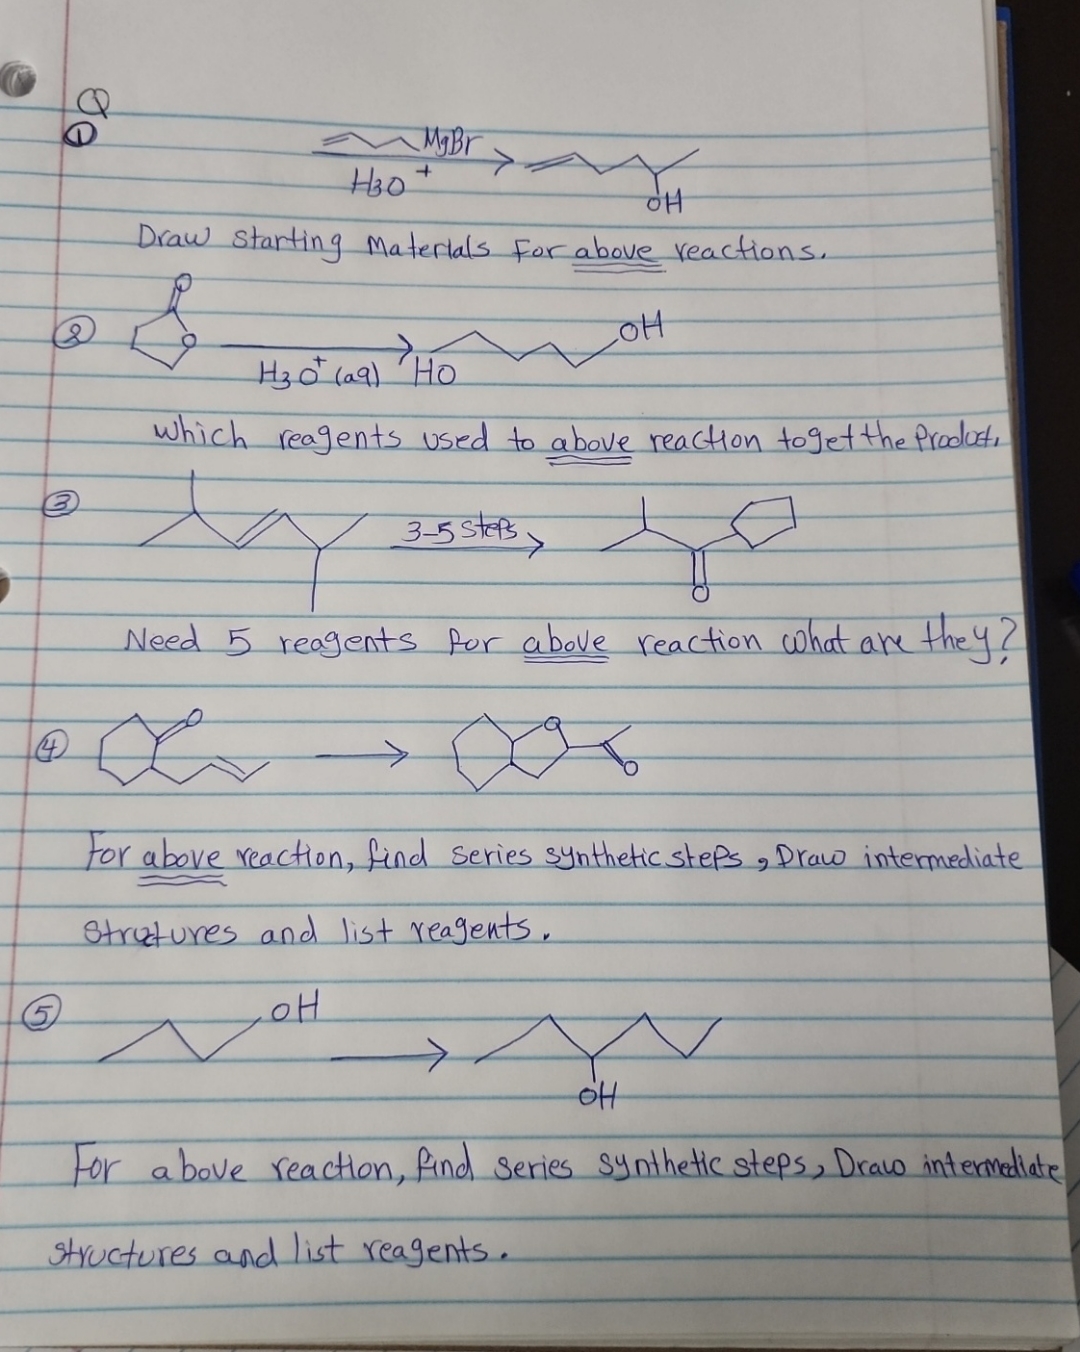 Q
① MgBr
H3O+
OH
Draw Starting Materials for above reactions.
O
② O OH
H3O+ (aq) HO
which reagents used to above reaction to get the Product.
③ 3-5 Steps
O
Need 5 reagents for above reaction what are they?
④ O O
O
For above reaction, find series synthetic steps, Draw intermediate
Structures and list reagents.
⑤ OH
OH
For above reaction, find series synthetic steps, Draw intermediate
structures and list reagents.